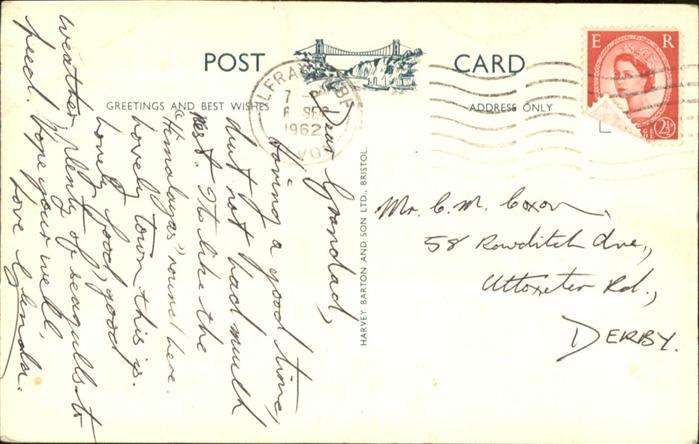 POST CARD
GREETINGS AND BEST WISHES
ADDRESS ONLY
E R
2½
ILFRACOMBE
7
6 SEP
1962
DEVON
HARVEY BARTON AND SON LTD., BRISTOL.
Dear Grandad,
Having a good time,
but not had much
rest. Its like the
"Himalayas" round here.
Lovely town this is.
Lovely food, good
weather, plenty of seagulls to
feed. Hope your well,
Love Glenda.
Mr. C. M. Coxon,
58 Rowditch Ave,
Uttoxeter Rd.,
DERBY.